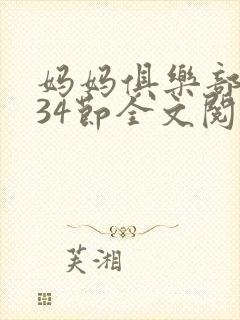 妈妈俱樂部
34節全文閱
芙湘